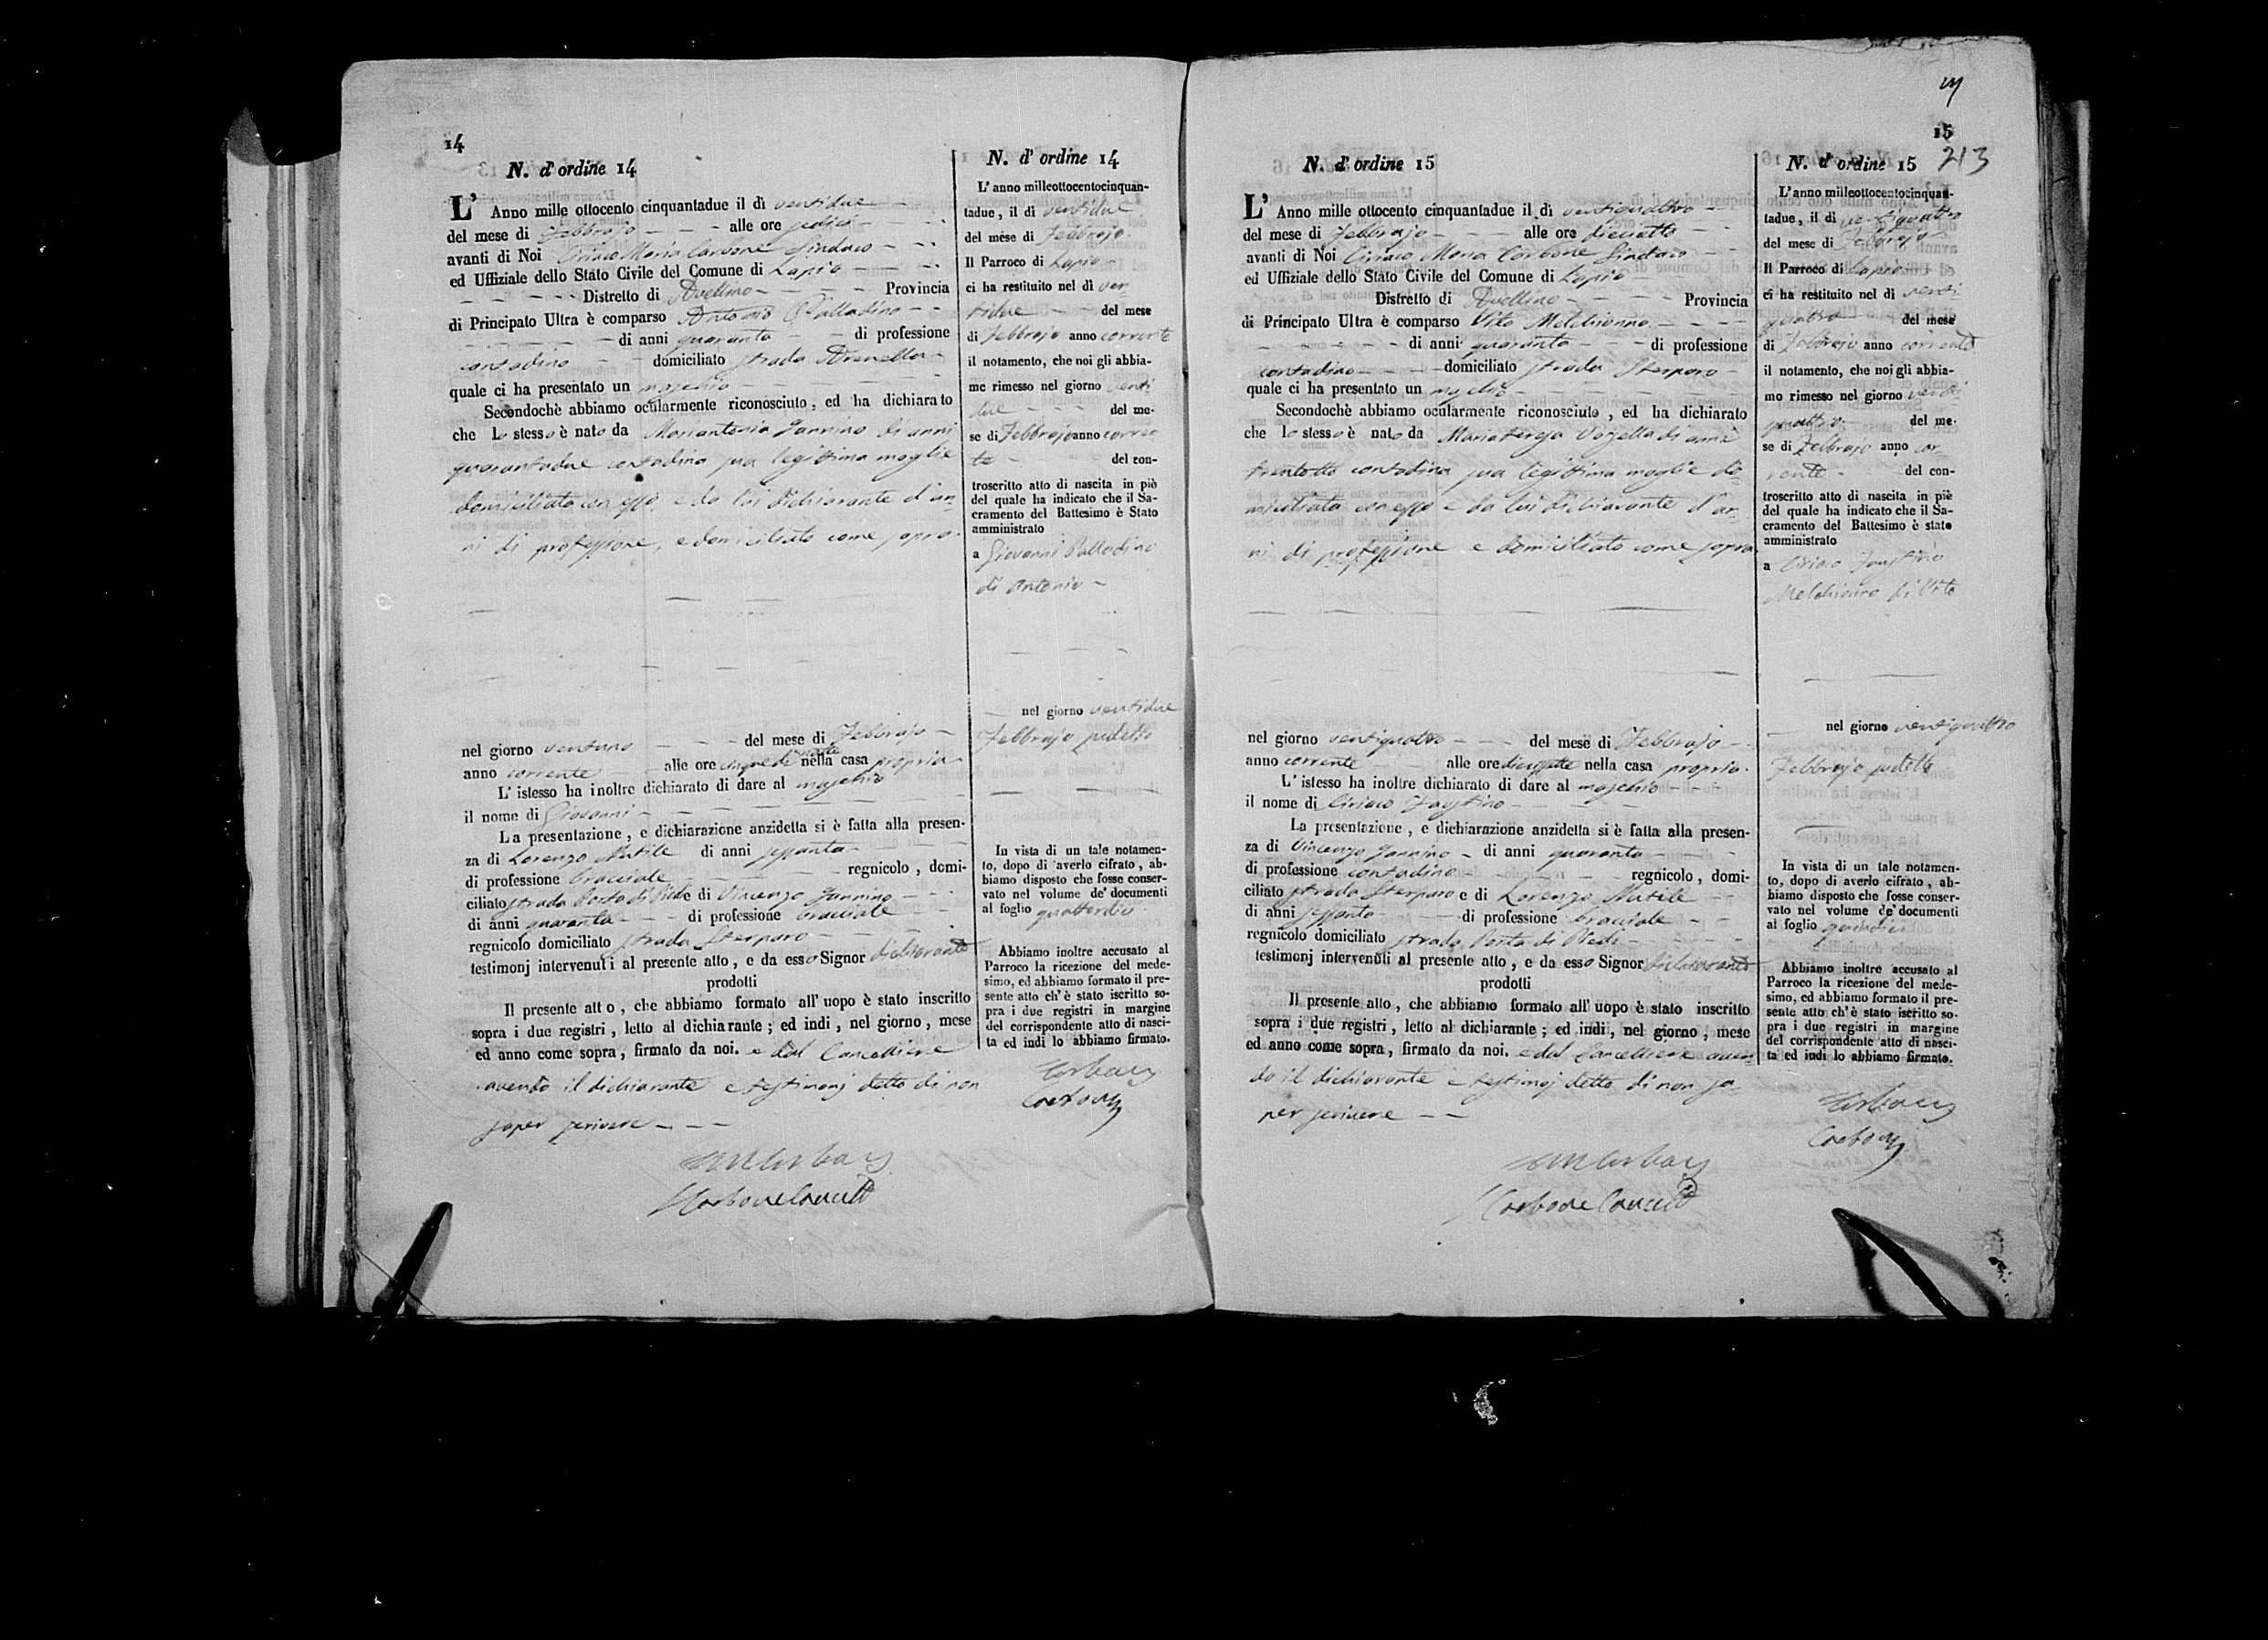 14
N. d' ordine 14
L' Anno mille ottocento cinquantadue il dì ventidue
del mese di Febbrajo alle ore sedici
avanti di Noi Ciriaco Maria Carbone Sindaco
ed Uffiziale dello Stato Civile del Comune di Lapio
Distretto di Avellino Provincia
di Principato Ultra è comparso Antonio Palladino
di anni quaranta di professione
contadino domiciliato strada Arenella
quale ci ha presentato un maschio
Secondochè abbiamo ocularmente riconosciuto, ed ha dichiarato
che lo stesso è nato da Mariantonia Iannino di anni
quarantadue contadina sua legittima moglie
domiciliata con esso, e da lui dichiarante d'an-
ni di professione, e domiciliato come sopra.
nel giorno ventuno del mese di Febbrajo
anno corrente alle ore cinque di notte nella casa propria
L' istesso ha inoltre dichiarato di dare al maschio
il nome di Giovanni
La presentazione, e dichiarazione anzidetta si è fatta alla presen-
za di Lorenzo Mutile di anni sessanta
di professione bracciale regnicolo, domi-
ciliato strada Porta di Piedi e di Vincenzo Iannino
di anni quaranta di professione bracciale
regnicolo domiciliato strada Sterparo
testimonj intervenuti al presente atto, e da esso Signor dichiarante
prodotti
Il presente atto, che abbiamo formato all' uopo è stato inscritto
sopra i due registri, letto al dichiarante; ed indi, nel giorno, mese
ed anno come sopra, firmato da noi. e dal Cancelliere
avendo il dichiarante e testimonj detto di non
saper scrivere
Carbone Canc
N. d' ordine 14
L' anno milleottocentocinquan-
tadue, il di ventidue
del mese di Febbrajo
Il Parroco di Lapio
ci ha restituito nel dì ven
tidue del mese
di Febbrajo anno corrente
il notamento, che noi gli abbia-
mo rimesso nel giorno venti
due del me-
se di Febbrajo anno corren
te del con-
troscritto atto di nascita in piè
del quale ha indicato che il Sa-
cramento del Battesimo è Stato
amministrato
a Giovanni Palladino
di Antonio
nel giorno ventidue
Febbrajo sudetto
In vista di un tale notamen-
to, dopo di averlo cifrato, ab-
biamo disposto che fosse conser-
vato nel volume de' documenti
al foglio quattordici
Abbiamo inoltre accusato al
Parroco la ricezione del mede-
simo, ed abbiamo formato il pre-
sente atto ch' è stato iscritto so-
pra i due registri in margine
del corrispondente atto di nasci-
ta ed indi lo abbiamo firmato.
Carbone
15
213
N. d' ordine 15
L' Anno mille ottocento cinquantadue il dì ventiquattro
del mese di Febbrajo alle ore dieciotto
avanti di Noi Ciriaco Maria Carbone Sindaco
ed Uffiziale dello Stato Civile del Comune di Lapio
Distretto di Avellino Provincia
di Principato Ultra è comparso Vito Melchionno
di anni quaranta di professione
contadino domiciliato strada Sterparo
quale ci ha presentato un maschio
Secondochè abbiamo ocularmente riconosciuto, ed ha dichiarato
che lo stesso è nato da Mariateresa di anni
trentotto contadina sua legittima moglie do-
miciliata con esso e da lui dichiarante d'an-
ni di professione e domiciliato come sopra
nel giorno ventiquattro del mese di Febbrajo
anno corrente alle ore diecisette nella casa propria
L' istesso ha inoltre dichiarato di dare al maschio
il nome di Ciriaco Faustino
La presentazione, e dichiarazione anzidetta si è fatta alla presen-
za di Vincenzo Iannino di anni quaranta
di professione contadino regnicolo, domi-
ciliato strada Sterparo e di Lorenzo Mutile
di anni sessanta di professione bracciale
regnicolo domiciliato strada Porta di Piedi
testimonj intervenuti al presente atto, e da esso Signor dichiarante
prodotti
Il presente atto, che abbiamo formato all' uopo è stato inscritto
sopra i due registri, letto al dichiarante; ed indi, nel giorno, mese
ed anno come sopra, firmato da noi. e dal Cancelliere aven
do il dichiarante e testimoj detto di non sa-
per scrivere
Carbone Canc
N. d' ordine 15
L' anno milleottocentocinquan-
tadue, il di ventiquattro
del mese di Febbrajo
Il Parroco di Lapio
ci ha restituito nel dì venti
quattro del mese
di Febbrajo anno corrente
il notamento, che noi gli abbia-
mo rimesso nel giorno venti
quattro del me-
se di Febbrajo anno cor
rente del con-
troscritto atto di nascita in piè
del quale ha indicato che il Sa-
cramento del Battesimo è stato
amministrato
a Ciriaco Faustino
Melchionno di Vito
nel giorno ventiquattro
Febbrajo sudetto
In vista di un tale notamen-
to, dopo di averlo cifrato, ab-
biamo disposto che fosse conser-
vato nel volume de' documenti
al foglio quindici
Abbiamo inoltre accusato al
Parroco la ricezione del mede-
simo, ed abbiamo formato il pre-
sente atto ch' è stato iscritto so-
pra i due registri in margine
del corrispondente atto di nasci-
ta ed indi lo abbiamo firmato.
Carbone